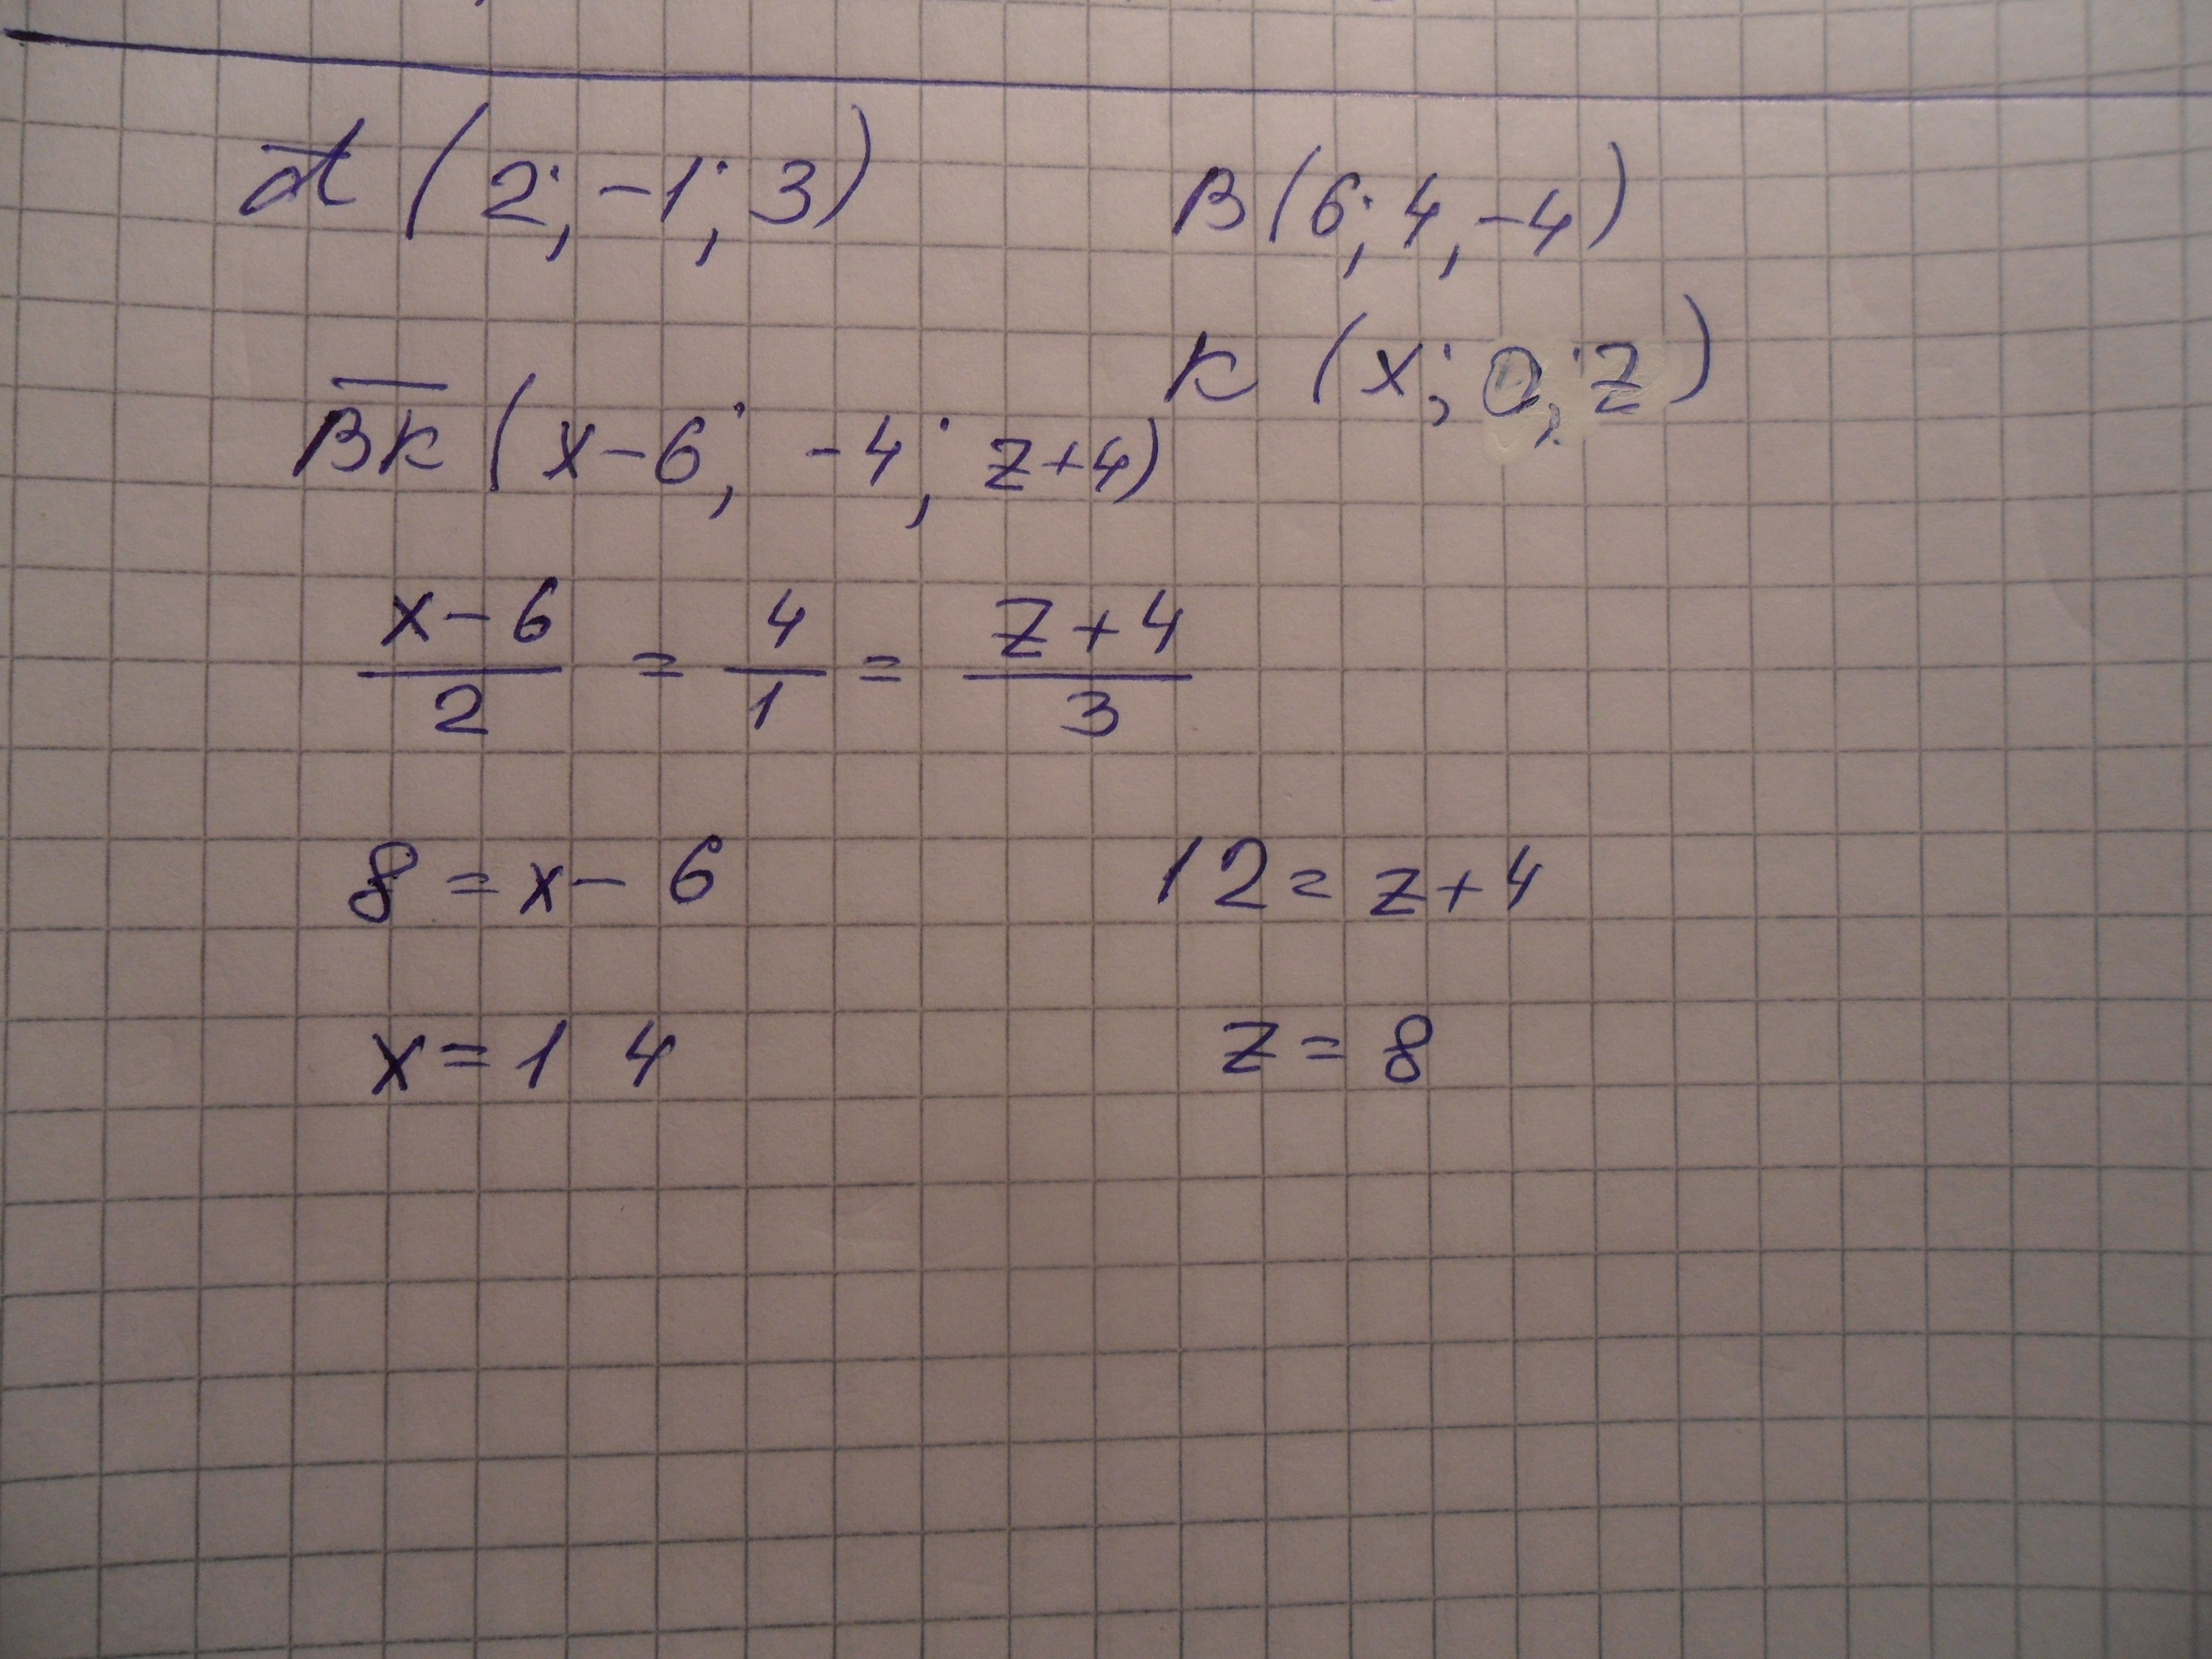 a̅ (2; -1; 3) B(6; 4, -4)
K (x; 0; z)
B̅K̅ (x-6; -4; z+4)
x-6/2 = 4/1 = z+4/3
8 = x - 6 12 = z + 4
x = 14 z = 8